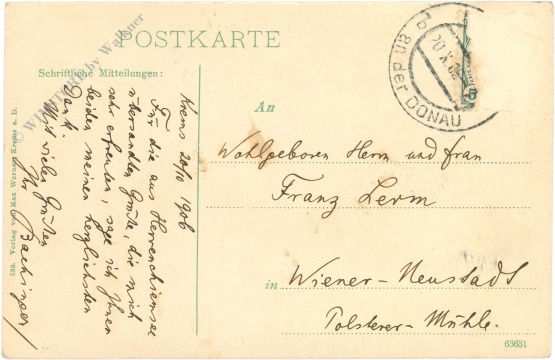 POSTKARTE
Schriftliche Mitteilungen:
© WINTORE by Wallner
Krems 20/10 1906
Für die aus Herrenchiemsee
übersandten Grüße, die mich
sehr erfreuten, sage ich Ihnen
beiden meinen herzlichsten
Dank.
Mit vielen Grüßen
Ihr Bachinger
556. Verlag von Max Werner Krems a. D.
20 X 06
der DONAU
An
Wohlgeboren Herrn und Frau
Franz Lerm
in Wiener-Neustadt
Polsterer-Mühle.
63631